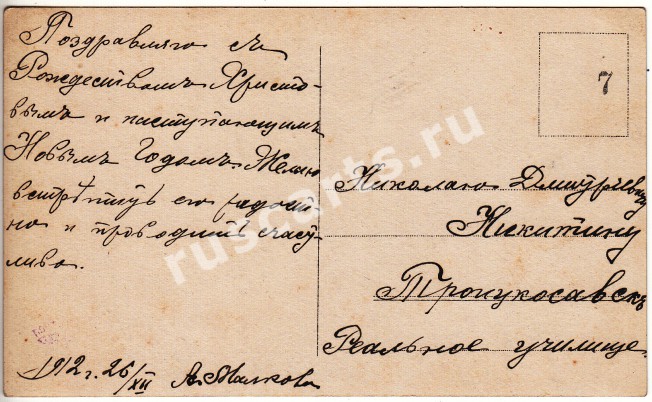 Поздравляю съ
Рождествомъ Христо-
вымъ и наступающимъ
Новымъ Годомъ. Желаю
встрѣтить его радост
но и проводить счаст
ливо.
1912 г. 26/XII А. Малкова
7
Николаю Дмитріевичу
Никитину
Троицкосавскъ
Реальное училище.
ruscarts.ru